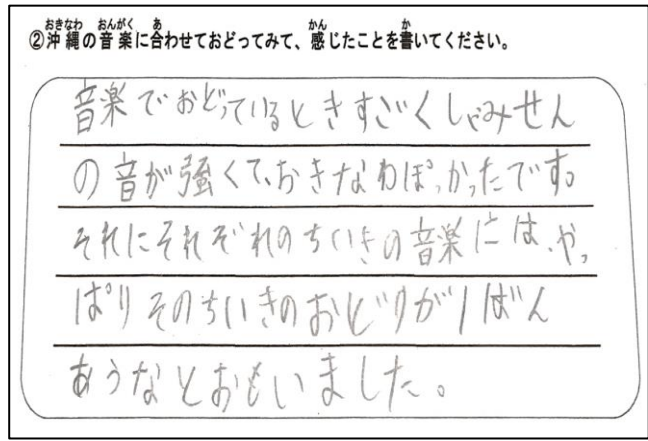 ②沖縄の音楽に合わせておどってみて、感じたことを書いてください。
音楽でおどっているときすごくしゃみせん
の音が強くて、おきなわぽっかったです。
それにそれぞれのちいきの音楽には、やっ
ぱりそのちいきのおどりが1ばん
あうなとおもいました。